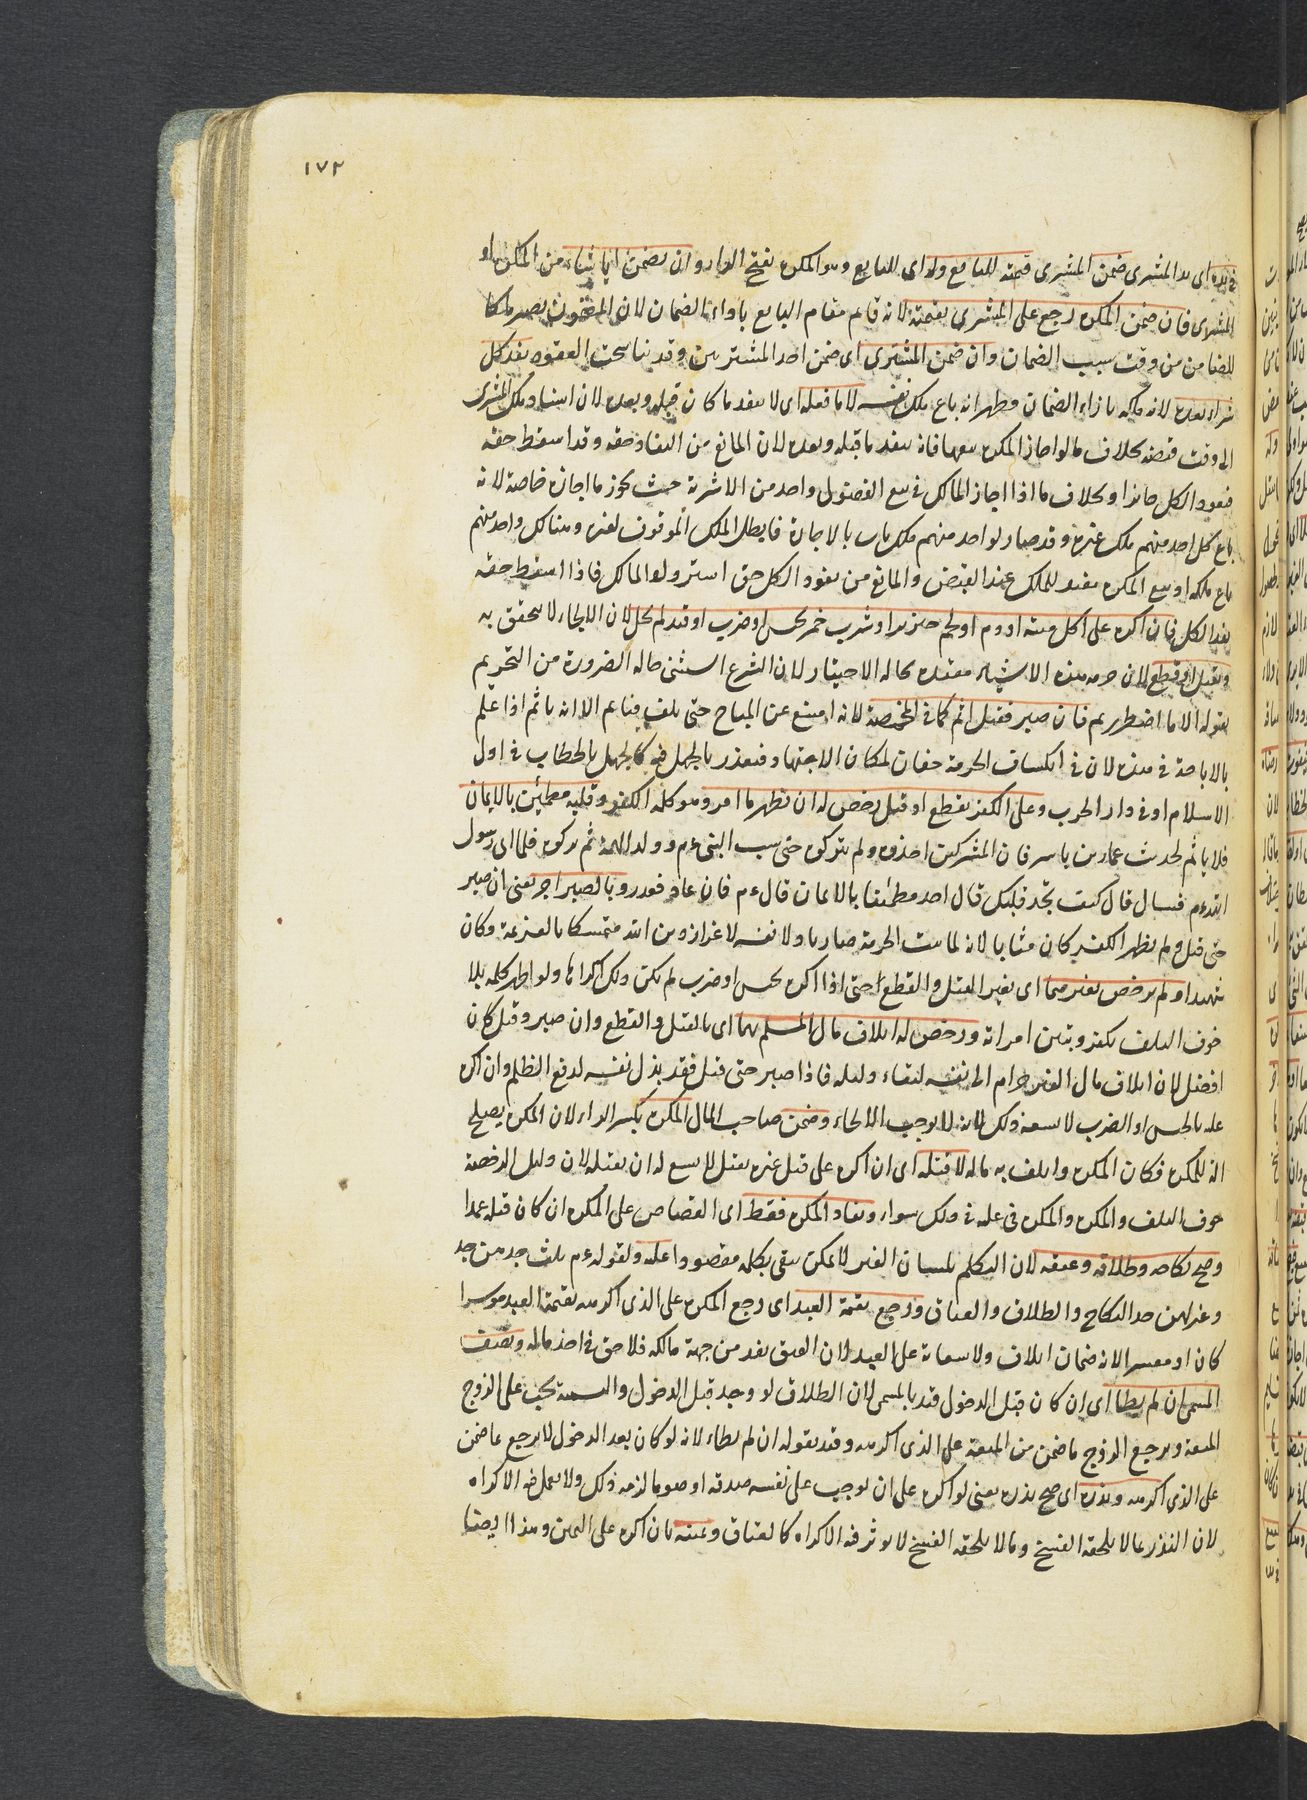 ١٧٢
في يده اى يد المشترى ضمن المشترى قيمته للبايع وله اى للبايع وهو المكره بفتح الراء وان يضمن ايا شاء من المكره او
المشترى فان ضمن المكره رجع على المشترى بقيمته لانه قام مقام البايع باداء الضمان لان المضمون يصير ملكا
للضامن من وقت سبب الضمان وان ضمن المشترى اى ضمن احد المشتريين وقد تناسخت العقود نفذ كل
شراء بعده لانه ملكه باداء الضمان وظهر انه باع ملك نفسه لا ما قبله اى لا ينفذ ما كان قبله وبعده لان استناد ملك المشترى
الى وقت قبضه بخلاف ما لو اجاز المكره بيعها فانه ينفذ ما قبله وبعده لان المانع من النفاذ حقه وقد اسقط حقه
فيعود الكل جائزا وبخلاف ما اذا اجاز المالك في بيع الفضولى واحد من الاشرية حيث يجوز ما اجازه خاصة لانه
باع كل احد منهم ملك غيره وقد صار لواحد منهم ملك بات بالاجازة فابطل الملك الموقوف لغيره وهنا كل واحد منهم
باع ملكه اذ بيع المكره يفيد الملك عند القبض والمانع من نفوذ الكل حق استرداد المالك فاذا اسقط حقه
نفذ الكل فان اكره على اكل ميتة او دم او لحم خنزير او شرب خمر بحبس او ضرب او قيد لم يحل لان الالجاء لا يتحقق به
وبقتل او قطع لان حرمة هذه الاشياء مقيدة بحالة الاختيار لان الشرع استثنى حالة الضرورة من التحريم
بقوله الا ما اضطررتم فان صبر فقتل اثم كما في المخمصة لانه امتنع عن المباح حتى تلف فيأثم الا انه يأثم اذا علم
بالاباحة في هذه لان في انكشاف الحرمة خفاء لمكان الاجتهاد فيعذر بالجهل فيه كالجهل بالخطاب في اول
الاسلام او في دار الحرب وعلى الكفر بقطع او قتل رخص له ان يظهر ما امر وهو كلمة الكفر وقلبه مطمئن بالايمان
فلا يأثم لحديث عمار بن ياسر فان المشركين اخذوه ولم يتركوه حتى سب النبى ءم وذكر الهتهم ثم تركوه فلما اتى رسول
الله ءم فسال قال كيف تجد قلبك قال اجد مطمئنا بالايمان قال ءم فان عادوا فعد وبالصبر اجر يعنى ان صبر
حتى قتل ولم يظهر الكفر كان مثابا لانه لما بقيت الحرمة صار باذلا نفسه لاعزاز دين الله متمسكا بالعزيمة وكان
شهيدا ولم يرخص بغيرهما اى بغير القتل والقطع حتى اذا اكره بحبس او ضرب لم يكن ذلك اكراها ولو اظهر كلمة بلا
خوف التلف يكفر وتبين امراته ورخص له اتلاف مال المسلم بهما اى بالقتل والقطع وان صبر وقتل كان
افضل لان اتلاف مال الغير حرام الى نفسه لبقاء دليله فاذا صبر حتى قتل فقد بذل نفسه لدفع الظلم وان اكره
عليه بالحبس او الضرب لا يسعه ذلك لانه لا يوجب الالجاء وضمن صاحب المال المكره بكسر الراء لان المكره يصلح
الة للمكره فكان المكره واتلف به ماله لا قتله اى ان اكره على قتل غيره بقتل لا يسع له ان يقتله لان دليل الرخصة
خوف التلف والمكره والمكره في عليه في ذلك سواء ويقاد المكره فقط اى القصاص على المكره ان كان قتله عمدا
وصح نكاحه وطلاقه وعتقه لان التكلم بلسان الغير لا يمكن يبقى تكلمه مقصودا عليه ولقوله ءم ثلث جدهن جد
وهزلهن جد النكاح والطلاق والعتاق ورجع بقيمة العبد اى رجع المكره على الذى اكرهه بقيمة العبد موسرا
كان او معسرا لانه ضمان اتلاف ولا سعاية على العبد لان العتق نفذ من جهة مالكه فلا حق في اخذ ماله ونصف
المسمى ان لم يطأ اى ان كان قبل الدخول قيد بالمسمى لان الطلاق لو وجد قبل الدخول والتسمية يجب على الزوج
المتعة ويرجع الزوج ما ضمن من المتعة على الذى اكرهه وقيد بقوله ان لم يطاء لانه لو كان بعد الدخول لا يرجع بما ضمن
على الذى اكرهه ونذره اى صح نذره يعنى لو اكره على ان يوجب على نفسه صدقة او صوما لزمه ذلك ولا يعمل فيه الاكراه
لان النذر مما لا يلحقه الفسخ وما لا يلحقه الفسخ لا يؤثر فيه الاكراه كالعتاق ويمينه بان اكره على اليمين وهذا ايضا